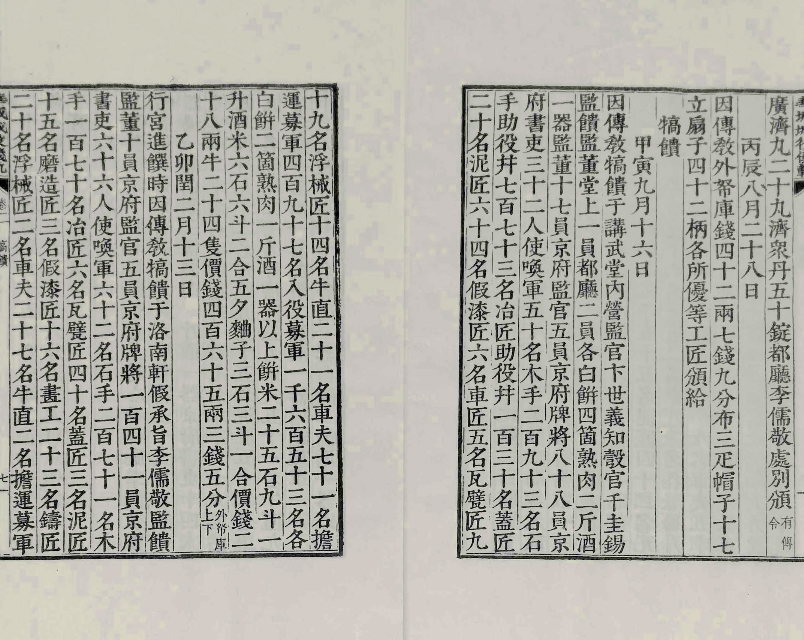 廣濟九二十九濟衆丹五十錠都廳李儒敬處別頒有傳令
丙辰八月二十八日
因傳敎外帑庫錢四十二兩七錢九分布三疋帽子十七
立扇子四十二柄各所優等工匠頒給
犒饋
甲寅九月十六日
因傳敎犒饋于講武堂內營監官卞世義知彀官千圭錫
監饋監董堂上一員都廳二員各白餠四箇熟肉二斤酒
一器監董十七員京府監官五員京府牌將八十八員京
府書吏三十二人使喚軍五十名木手二百九十三名石
手助役幷七百七十三名冶匠助役幷一百三十名蓋匠
二十名泥匠六十四名假漆匠六名車匠五名瓦甓匠九
十九名浮械匠十四名牛直二十一名車夫七十一名擔
運募軍四百九十七名入役募軍一千六百五十三名各
白餠二箇熟肉一斤酒一器以上餠米二十五石九斗一
升酒米六石六斗二合五夕麯子三石三斗一合價錢二
十八兩牛二十四隻價錢四百六十五兩三錢五分外帑庫上下
乙卯閏二月十三日
行宮進饌時因傳敎犒饋于洛南軒假承旨李儒敬監饋
監董十員京府監官五員京府牌將一百四十一員京府
書吏六十六人使喚軍六十二名石手二百七十一名木
手一百七十名冶匠六名瓦甓匠四十名蓋匠三名泥匠
十五名磨造匠三名假漆匠十六名畫工二十三名鑄匠
二十名浮械匠二名車夫二十七名牛直二名擔運募軍
犒饋
七一